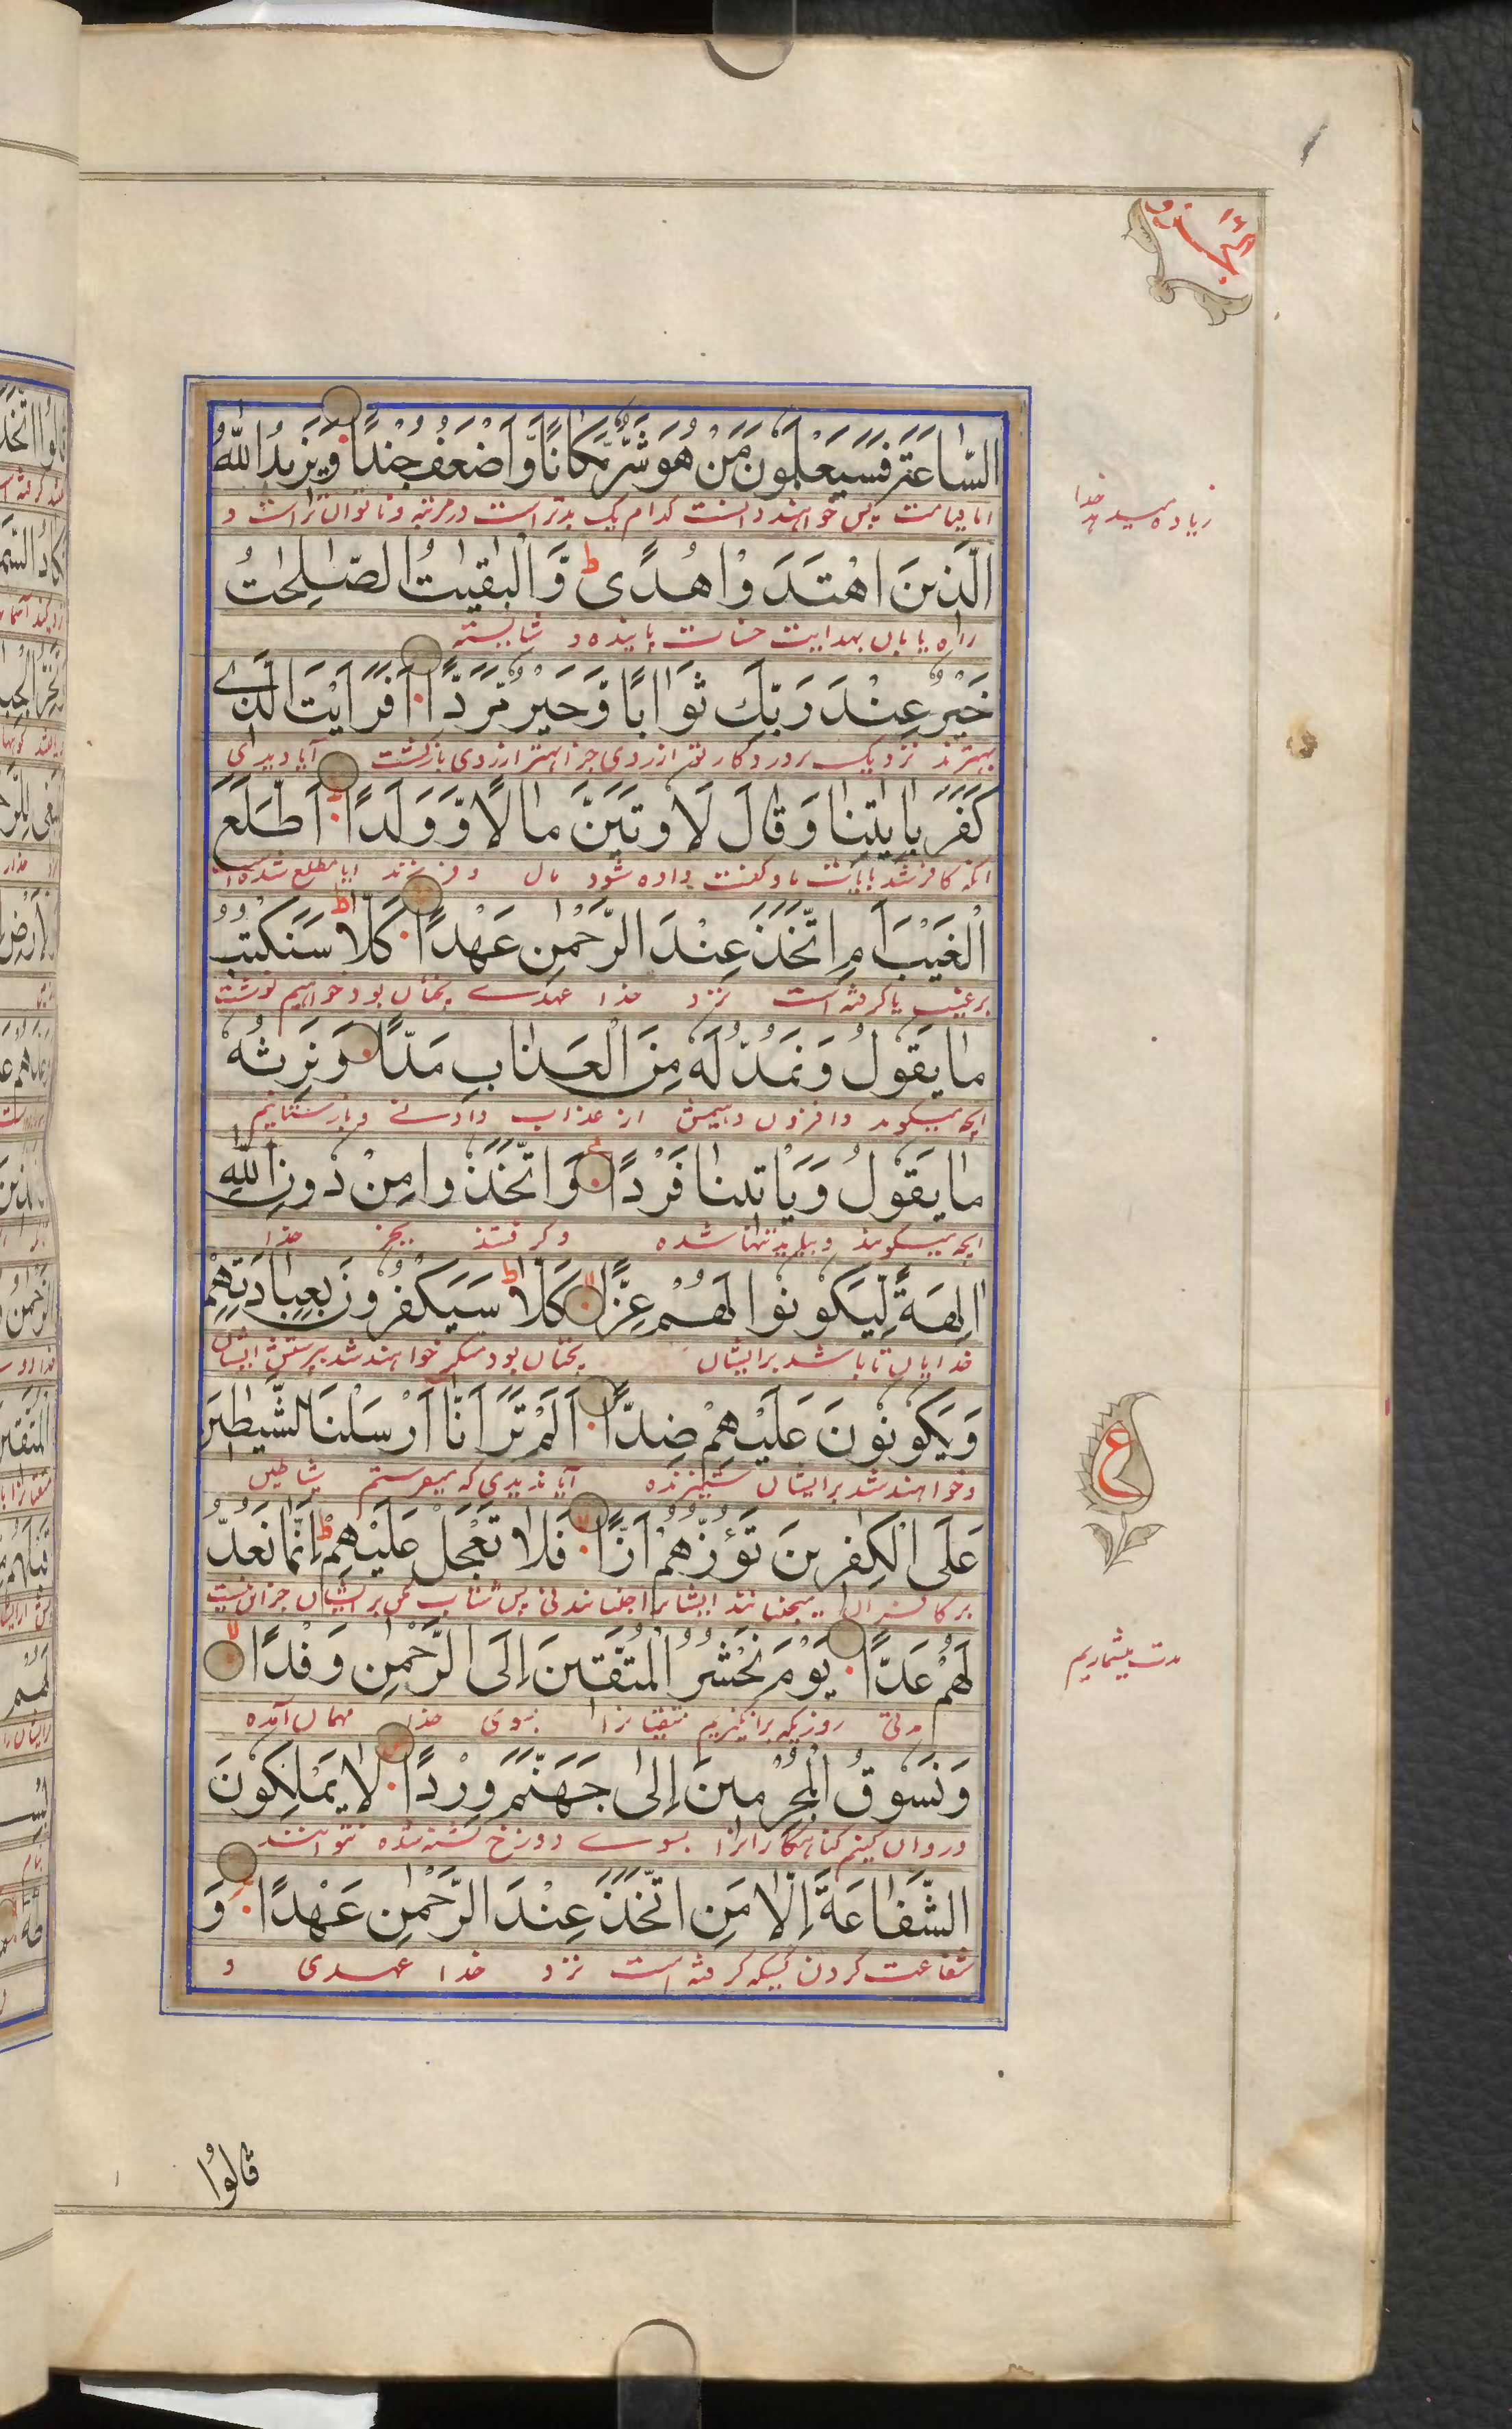 الجزو ١٦
السَّاعَةَ فَسَيَعْلَمُونَ مَنْ هُوَ شَرٌّ مَّكَانًا وَّاَضْعَفُ جُنْدًا وَيَزِيْدُ اللّٰهُ
اما قیامت پس خواهند دانست کدام یک بدتر است در مرتبه و ناتوان تر است و
زیاده میدهد خدا
الَّذِينَ اهْتَدَوْا هُدًى ط وَّالْبٰقِيٰتُ الصّٰلِحٰتُ
راه یابان بهدایت حسنات پاینده و شایسته
خَيْرٌ عِنْدَ رَبِّكَ ثَوَابًا وَّخَيْرٌ مَّرَدًّا اَفَرَاَيْتَ الَّذِي
بهترند نزدیک پروردگار تو ازروی جزا بهتر ازروی بازگشت آیا دیدی
كَفَرَ بِاٰيٰتِنَا وَقَالَ لَاُوتَيَنَّ مَالًا وَّوَلَدًا اَطَّلَعَ
آنکه کافر شد بآیات ما و گفت داده شود مال و فرزند ایا مطلع شده است
الْغَيْبَ اَمِ اتَّخَذَ عِنْدَ الرَّحْمٰنِ عَهْدًا كَلَّا ط سَنَكْتُبُ
بر غیب یا گرفته است نزد خدا عهدے نچنان بود خواهیم نوشت
مَا يَقُولُ وَنَمُدُّ لَهُ مِنَ الْعَذَابِ مَدًّا وَنَرِثُهُ
انچه میگوید و از عذاب
مَا يَقُولُ وَيَاْتِينَا فَرْدًا وَاتَّخَذُوا مِنْ دُونِ اللّٰهِ
انچه میگویند و بیاید تنها شده و گرفتند بجز خدا
اٰلِهَةً لِّيَكُونُوا لَهُمْ عِزًّا لا كَلَّا ط سَيَكْفُرُونَ بِعِبَادَتِهِمْ
خدایان تا باشد برایشان نچنان بود منکر خواهند شد بپرستش ایشان
وَيَكُونُونَ عَلَيْهِمْ ضِدًّا اَلَمْ تَرَ اَنَّا اَرْسَلْنَا الشَّيٰطِينَ
و خواهند شد برایشان ستیزنده آیا ندیدی که شیاطین
ع
عَلَى الْكٰفِرِينَ تَؤُزُّهُمْ اَزًّا لا فَلَا تَعْجَلْ عَلَيْهِمْ ط اِنَّمَا نَعُدُّ
بر کافران میجنبانند ایشانرا جنبانیدنی پس شتاب مکن برایشان جز این نیست
لَهُمْ عَدًّا يَوْمَ نَحْشُرُ الْمُتَّقِينَ اِلَى الرَّحْمٰنِ وَفْدًا لا
مدت میشماریم
مدتی روزیکه برانگیزیم متقیانرا بسوی خدا مهمان آمده
وَنَسُوقُ الْمُجْرِمِينَ اِلٰى جَهَنَّمَ وِرْدًا لَا يَمْلِكُونَ
و روان کنیم گناهگارانرا بسوے دوزخ تشنه شده نتوانند
الشَّفَاعَةَ اِلَّا مَنِ اتَّخَذَ عِنْدَ الرَّحْمٰنِ عَهْدًا وَ
شفاعت کردن کسیکه گرفته است نزد خدا عهدی و
قَالُوا